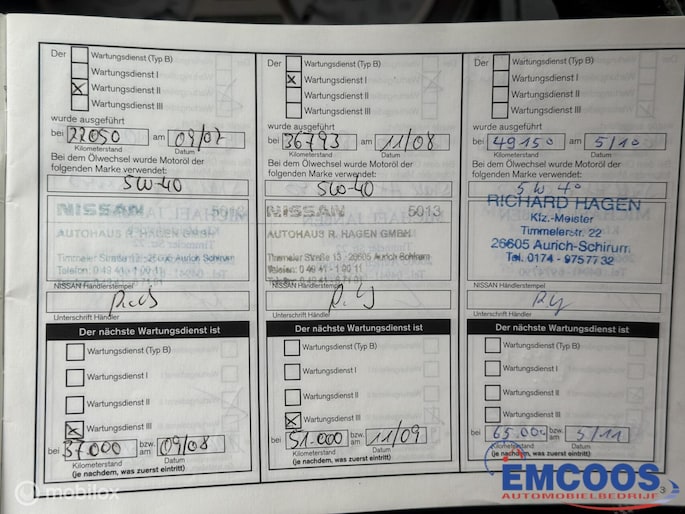 Der
Wartungsdienst (Typ B)
Wartungsdienst I
Wartungsdienst II
Wartungsdienst III
wurde ausgeführt
bei 22050 am 09/07
Kilometerstand Datum
Bei dem Ölwechsel wurde Motoröl der
folgenden Marke verwendet:
5W-40
NISSAN 5013
AUTOHAUS R. HAGEN GMBH
Timmeler Straße 13 · 26605 Aurich-Schirum
NISSAN Händlerstempel
Unterschrift Händler
Der nächste Wartungsdienst ist
Wartungsdienst (Typ B)
Wartungsdienst I
Wartungsdienst II
Wartungsdienst III
bei 37.000 bzw. am 09/08
Kilometerstand Datum
(je nachdem, was zuerst eintritt)
Der
Wartungsdienst (Typ B)
Wartungsdienst I
Wartungsdienst II
Wartungsdienst III
wurde ausgeführt
bei 36793 am 11/08
Kilometerstand Datum
Bei dem Ölwechsel wurde Motoröl der
folgenden Marke verwendet:
5W-40
NISSAN 5013
AUTOHAUS R. HAGEN GMBH
Timmeler Straße 13 · 26605 Aurich-Schirum
NISSAN Händlerstempel
Unterschrift Händler
Der nächste Wartungsdienst ist
Wartungsdienst (Typ B)
Wartungsdienst I
Wartungsdienst II
Wartungsdienst III
bei 51.000 bzw. am 11/09
Kilometerstand Datum
(je nachdem, was zuerst eintritt)
Der
Wartungsdienst (Typ B)
Wartungsdienst I
Wartungsdienst II
Wartungsdienst III
wurde ausgeführt
bei 49150 am 5/10
Kilometerstand Datum
Bei dem Ölwechsel wurde Motoröl der
folgenden Marke verwendet:
5W40
RICHARD HAGEN
Kfz.-Meister
Timmelerstr. 22
26605 Aurich-Schirum
Tel. 0174 - 9757732
NISSAN Händlerstempel
Unterschrift Händler
Der nächste Wartungsdienst ist
Wartungsdienst (Typ B)
Wartungsdienst I
Wartungsdienst II
Wartungsdienst III
bei 65.000 bzw. am 5/11
Kilometerstand Datum
(je nachdem, was zuerst eintritt)
3
EMCOOS
AUTOMOBIELBEDRIJF
mobilox